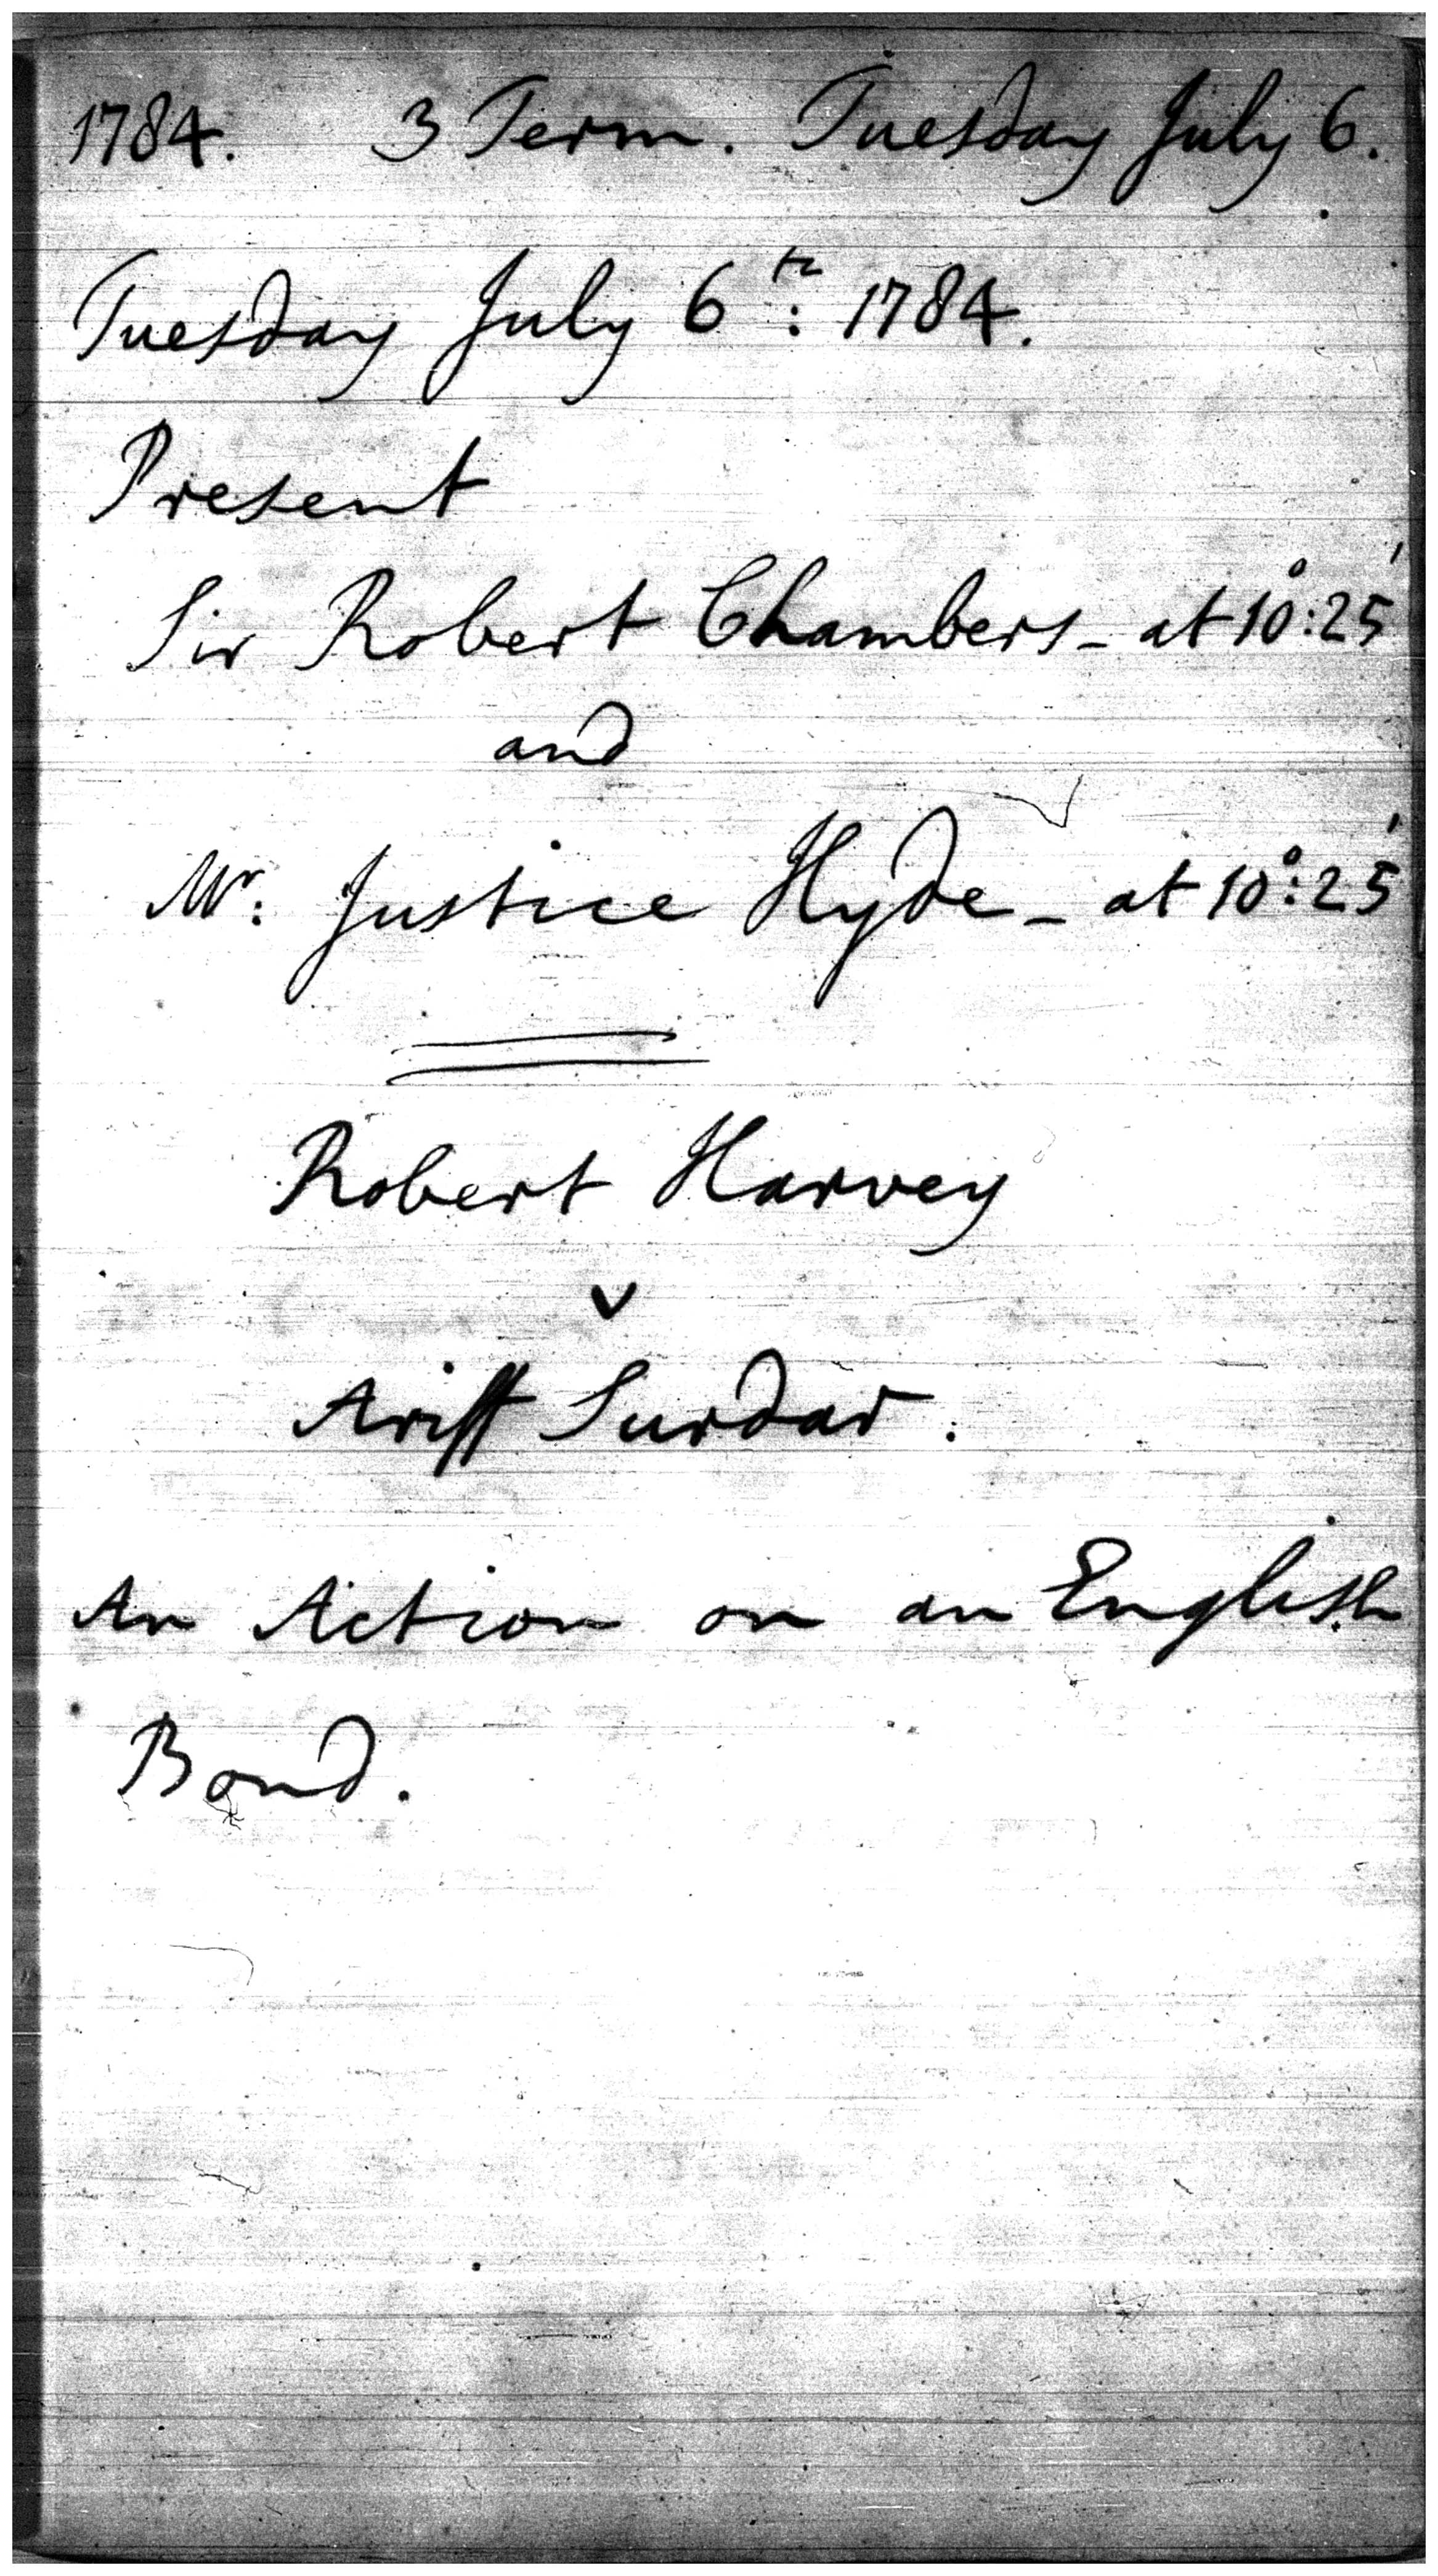 1784. 3 Term. Tuesday July 6.
Tuesday July 6th: 1784.
Present
Sir Robert Chambers - at 10°:25'
and
Mr: Justice Hyde - at 10°:25'
Robert Harvey
v
Ariff Surdar.
An Action on an English
Bond.